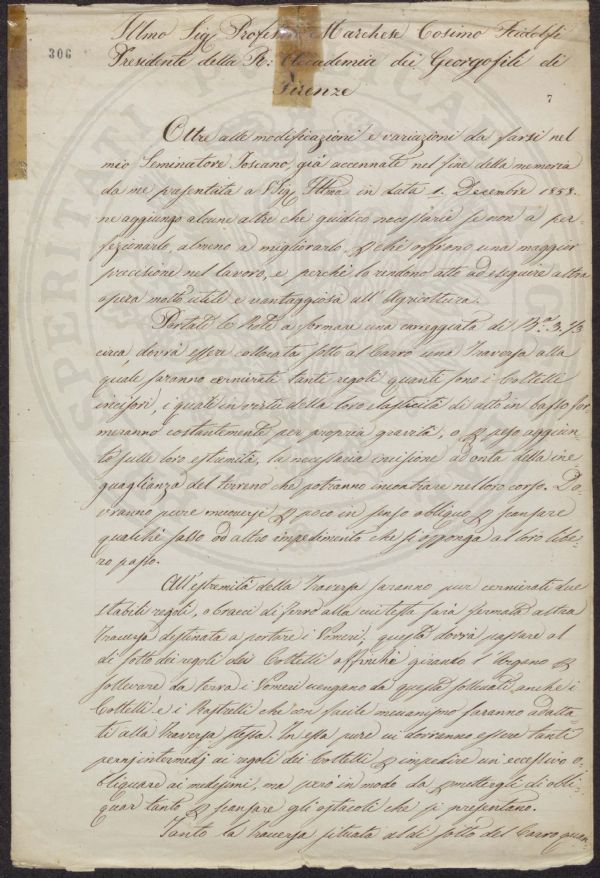 306
Illmo Sig. Profess. Marchese Cosimo Ridolfi
Presidente della R: Accademia dei Georgofili di
Firenze
7
Oltre alle modificazioni e variazioni da farsi nel
mio Seminatore Toscano, già accennate nel fine della memoria
da me presentata a S. Sig. Illmo in data 1. Decembre 1858.
ne aggiungo alcune altre che giudico necessarie se non a per-
fezionarlo, almeno a migliorarlo, che offrono una maggior
precisione nel lavoro, e perche lo rendono atto ad eseguire altra
opera molto utile e vantaggiosa all' Agricoltura.
Portate le Rote a formare una carreggiata di 3.
circa dovrà essere collocata sotto al Carro una Traversa alla
quale saranno cernierate tanti regoli quanti sono i Coltelli
incisori, i quali in virtù della loro elasticità di alto in basso for
meranno costantemente per propria gravità, o peso aggiun-
to sulle loro estremità, la necessaria incisione ad onta della ine-
guaglianza del terreno che potranno incontrare nel loro corso. Do-
vranno pure muoversi poco in senso obliquo scansare
qualche sasso od altro impedimento che si opponga al loro libe-
ro passo.
All' estremità della Traversa saranno pur cernierati due
stabili regoli, o bracci di ferro alla cui testa sarà fermata altra
Traversa destinata a portare i Vomeri, questa dovrà passare al
di sotto dei regoli dei Coltelli affinchè girando l' Argano
sollevare da terra i Vomeri vengano da questa sollevati anche i
Coltelli e i Rastrelli che con facile meccanismo saranno adatta-
ti alla Traversa stessa. In essa pure vi dovranno essere tanti
perni intermedj ai regoli dei Coltelli impedire un eccessivo o-
bliquare ai medesimi, ma però in modo da permettergli di obli-
quar tanto scansare gli ostacoli che si presentano.
Tanto la traversa situata al di sotto del Carro quan-